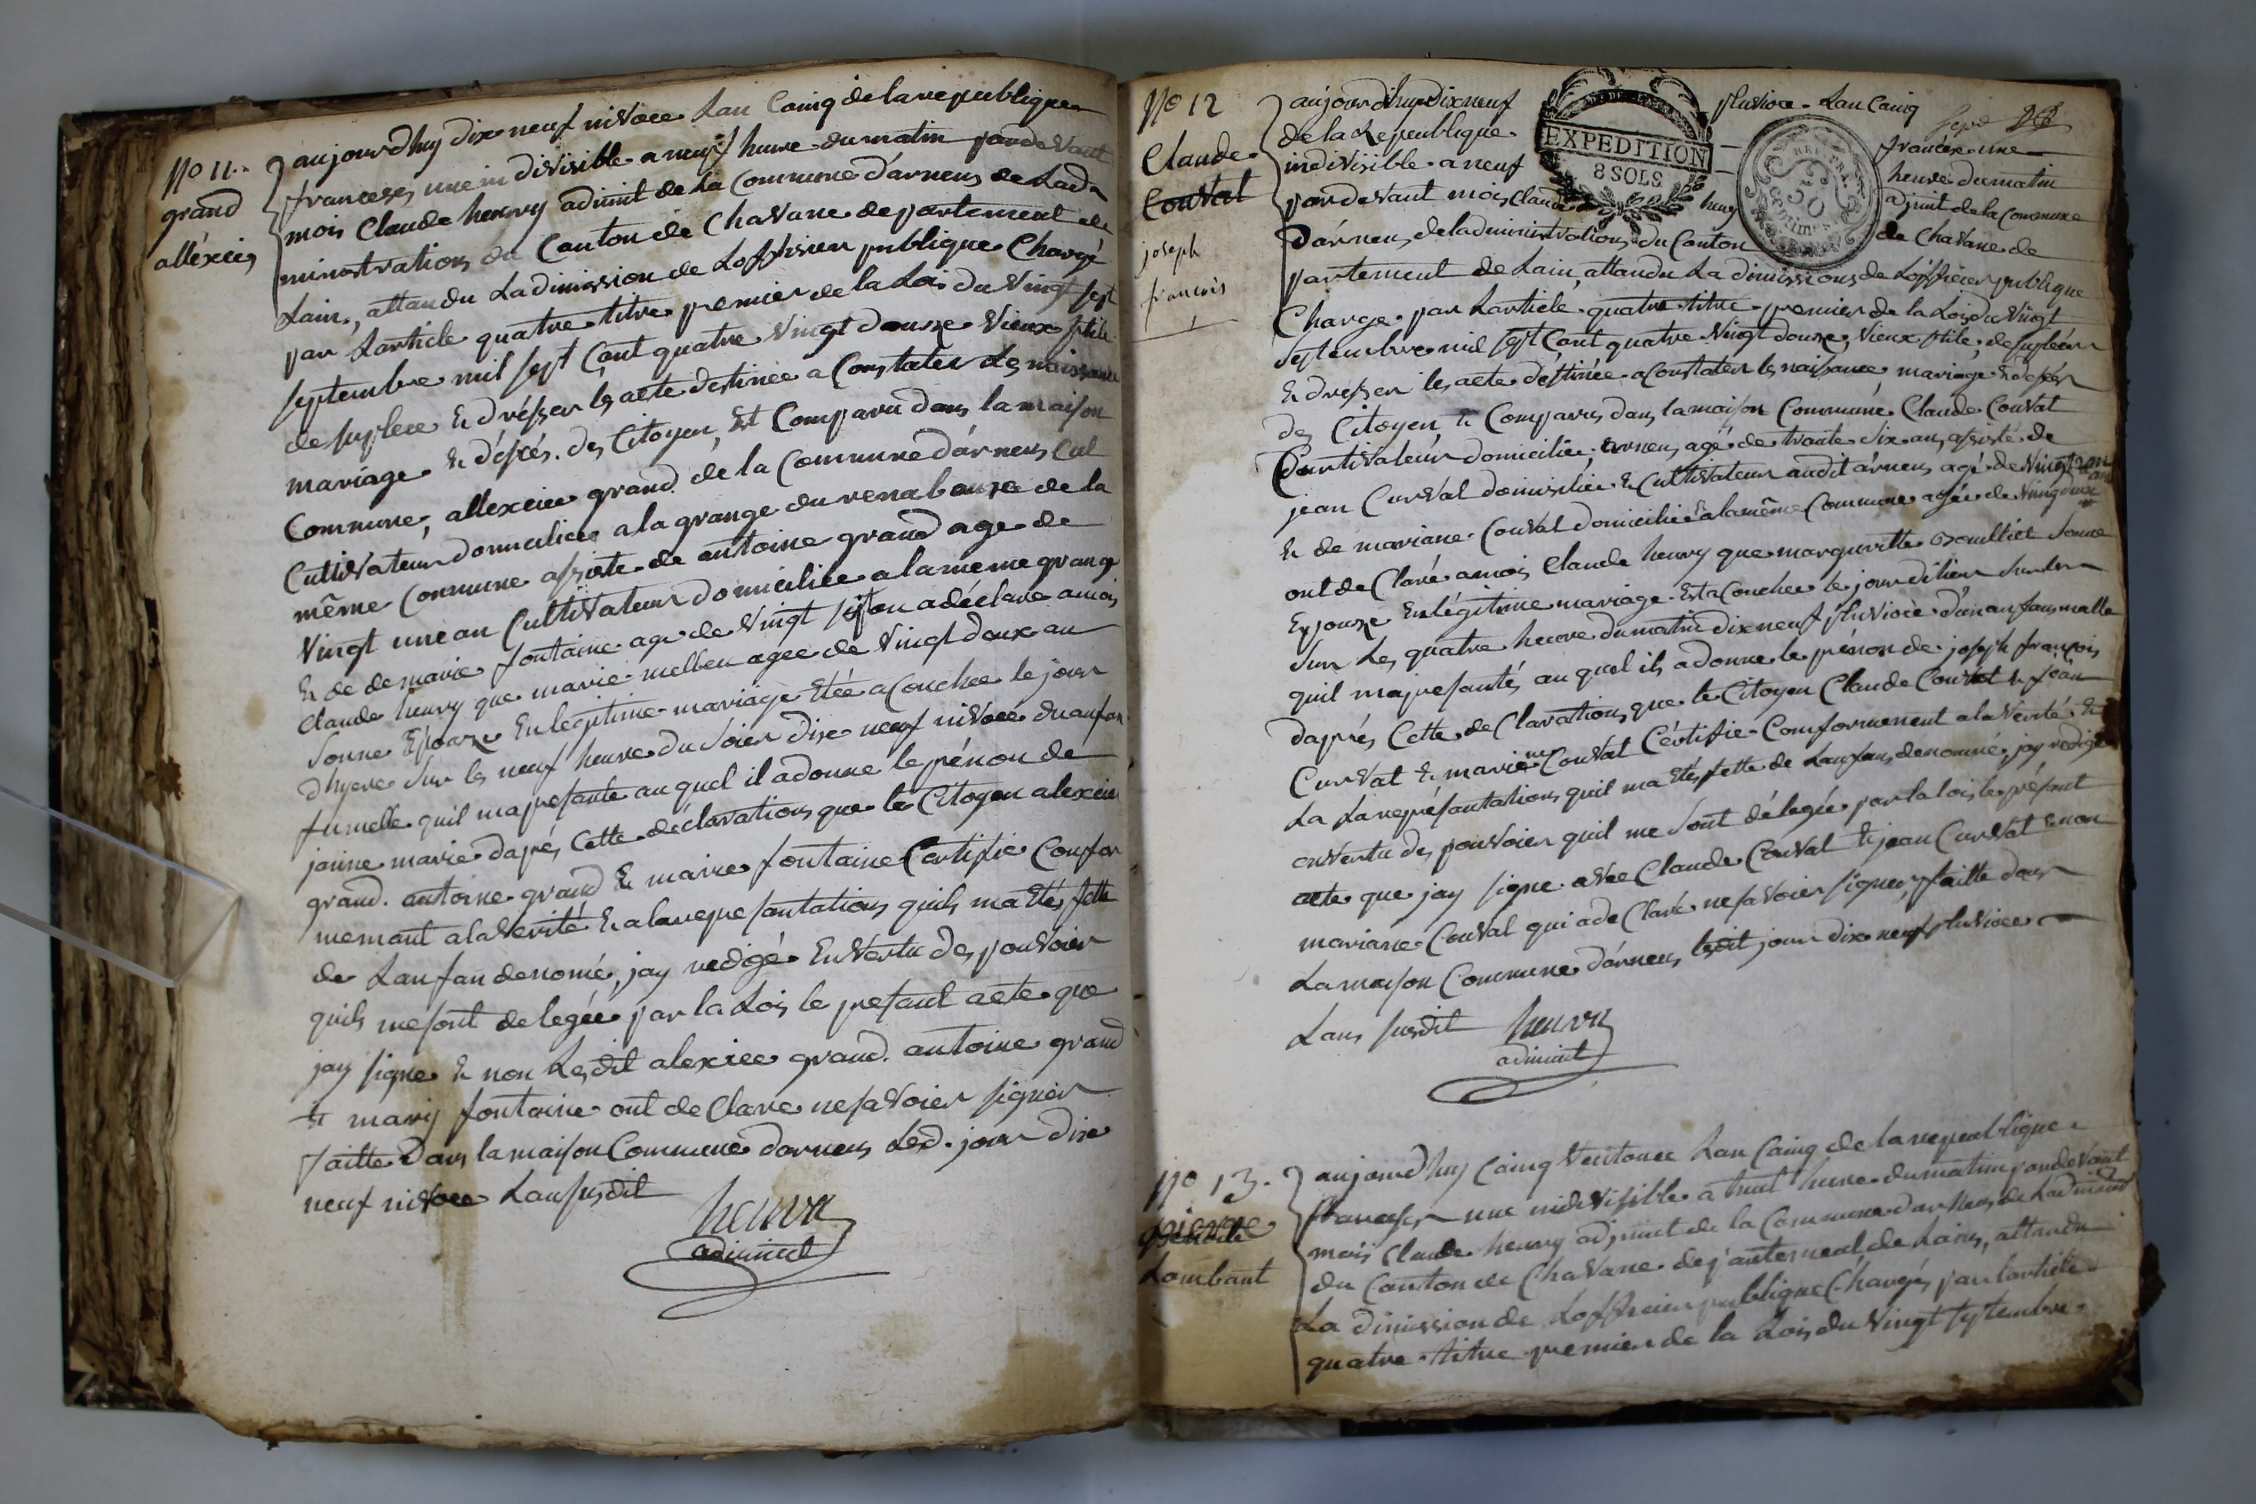 No 11..
grand
alléxcis
aujourdhuy dix neuf nivoce Lan Cainq de la republique
franceses une in divisible a neuf heure du matin pardevant
mois Claude henry adioint de La Commune d'arnens de Lad
ministrations du Canton de Chavane departement de
Lain, attandu La dimission de Loffisier publique Chargé
par Larticle quatre titre premier de la Lois du Vingt sept
septembre mil sept Cant quatre Vingt douze Vieux stile
de suplere & drésser les acte destinée a Constater Les naissance
mariage & déscés des Citoyen, Est Comparu dans la maison
Commune, allexcie grand de la Commune d'arnens Cul
Cultivateur domiciliee a la grange du renabouse de la
même Commune assiste de antoine grand age de
Vingt une an Cultivateur domiciliee a la meme grange
& de de marie fontaine age de Vingt sept on adéclare a mois
Claude henry que marie melleu agee de Vingt deux an
Sonne Epouze En legitime mariage Etée a Couchee le jour
dhyere Sur les neuf heure du Soier dix neuf nivoce dunanfan
fumelle quil ma presante au quel il a donne le prénon de
jeanne marie daprés Cette déclarations que le Citoyen alexcie
grand. antoine grand & marie fontaine Certifie Confor
memant a la verité & a la represantations quils ma étés fette
de Lanfan denomé, jay redigé En vertu des pouvoier
quils mesont delegée par la Lois le presant acte que
jay signe & non Lesdit alexice grand. antoine grand
& mariy fontaine ont de Clare ne savoier signer
faitte Dans la maison Commune darnens Led. jour dix
neuf nivoce Lansusdit
henry
adioint
No 12
Claude
Couval
joseph
francois
aujourdhuy dix neuf pluvioce Lan Cainq
EXPEDITION
8 SOLS
REP. FRA.
50
Centimes
de la Republique francese une
indivisible a neuf heure du matin
pardevant mois Claude henry adjoint de la Commune
D'arnens de ladministrations du Canton de Chavane de
partement de Lain, attandu La dimissions de Loffisier publique
Charge par Larticle quatre titre premier de la Lois du Vingt
Septembre mil sept Cant quatre Vingt douze, Vieux stile, de supleer
& dresser les acte déstinée a Constater les naissance mariage & déscés
des Citoyen & Comparus dans la maison Commune Claude Couval
Cultivateur domicilie, arnens agé de trante Six an, assisté de
jean Curval domicilié & Cultivateur audit arnens agé de Vingt
& de mariane Couval domicilié a la même Commune agée de Vingt deux
ont de Claré a mois Claude henry que marguritte Sonne
Epouze En légitime mariage Est a Couchee le jour dhier
Sur Les quatre heure du matin dix neuf pluvioce dun anfans malle
quil ma presanté au quel ils a donne le prénon de joseph françois
daprés Cette de Clarations que le Citoyen Claude Couval & jean
Curval & mariane Couval Cértifie Comformement a la Verité &
La La représantations quil ma étés fette de Lanfan, denomé, jay redige
en vertu des pouvoier quil me Sont délegée par la lois le présant
acte que jay signe avec Claude Couval & jean Curval & non
mariane Couval qui a de Claré ne savoier signer, faitte dans
La maison Commune d'arnens, ledit jour dix neuf pluvioce
Lans susdit
henry
adioint
No 13.
Lombant
aujourdhuy Cainq Ventouce Lan Cainq de la republique
franceses une indivisible a huit heure du matin pardevant
mois Claude henry adjoint de la Commune darnens de Ladminis
du Canton de Chavane departement de Lains, attandu
La dimission de Loffisier publique Chargés par Larticle
quatre titre premier de la Lois du Vingt septembre